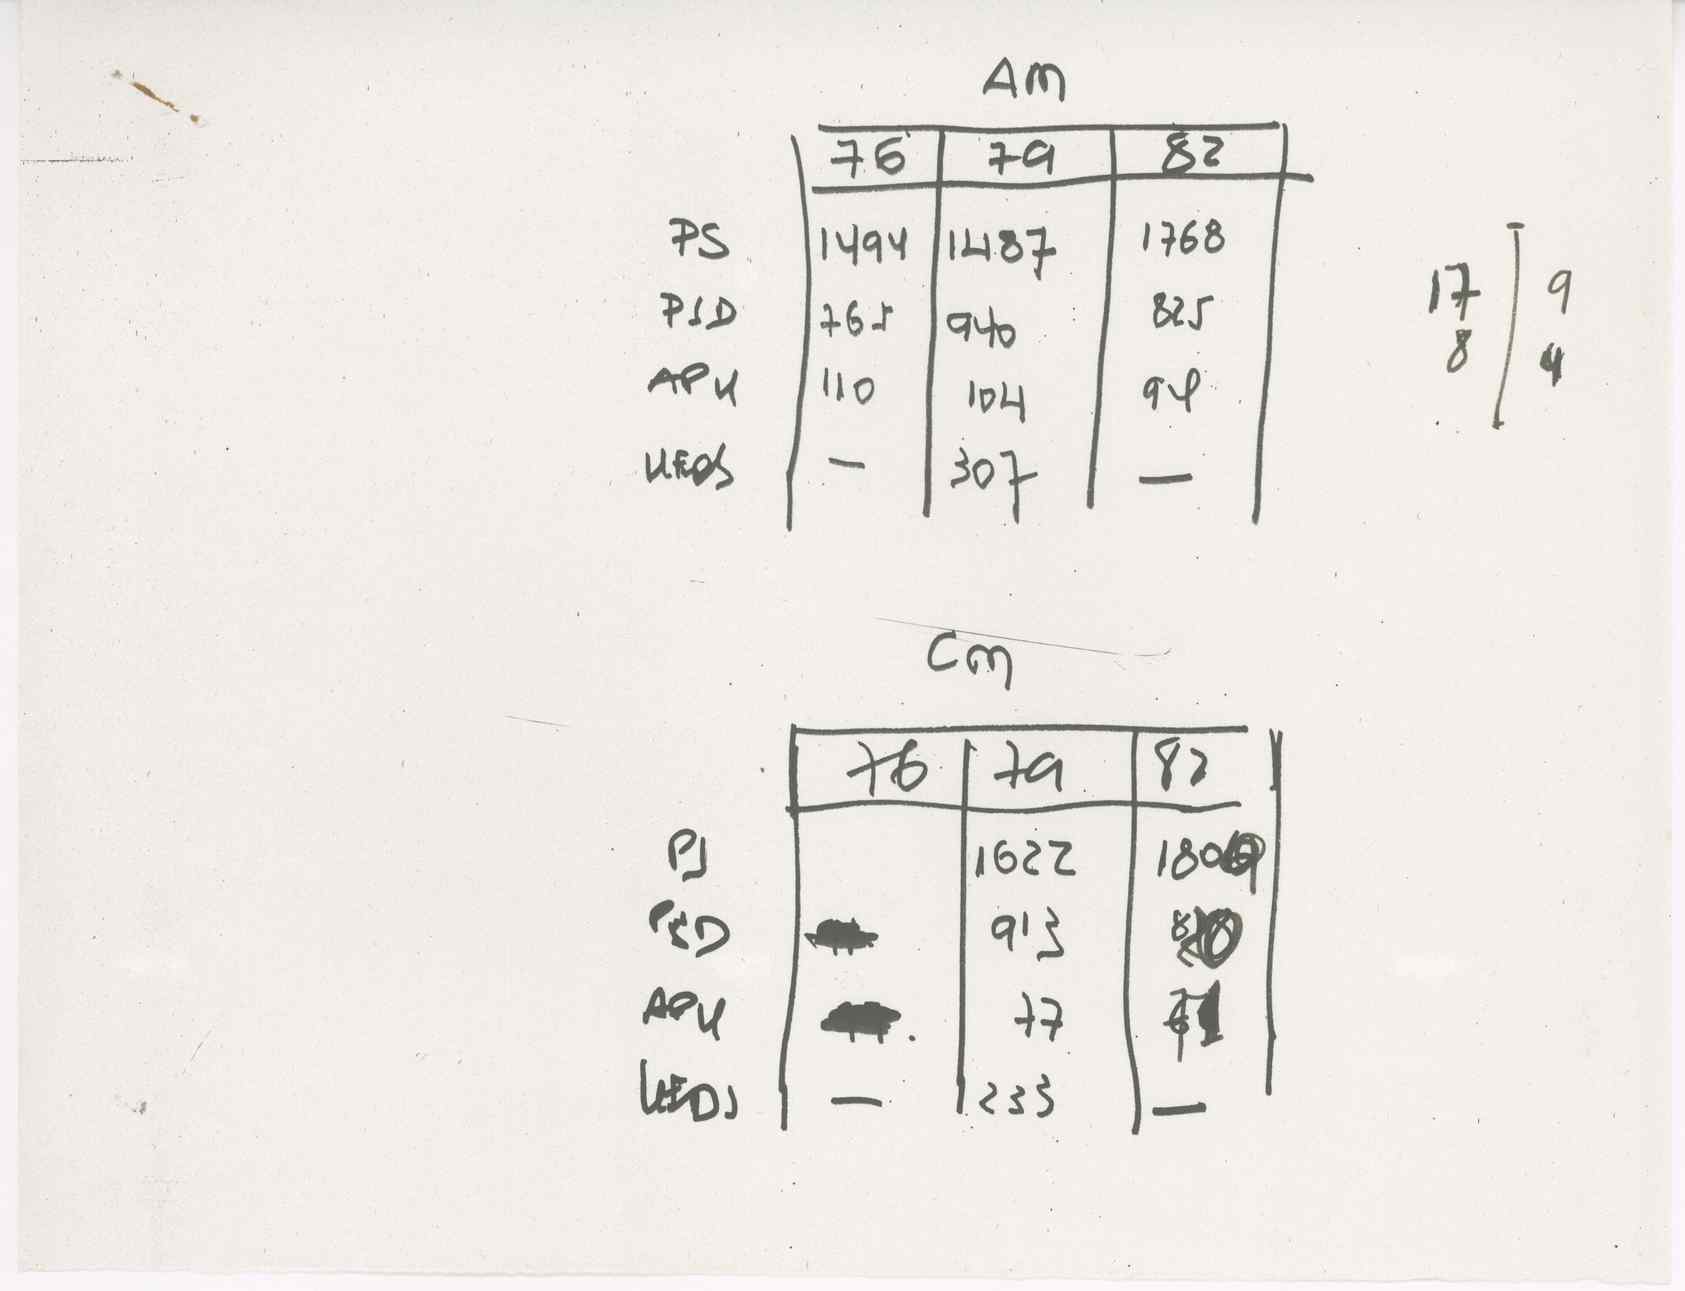 AM
76 79 82
PS 1494 1487 1768
PSD 765 940 825
APU 110 104 94
UEDS — 307 —
17 9
8 4
CM
76 79 82
PS 1622
PSD 913
APU 77
UEDS — 233 —